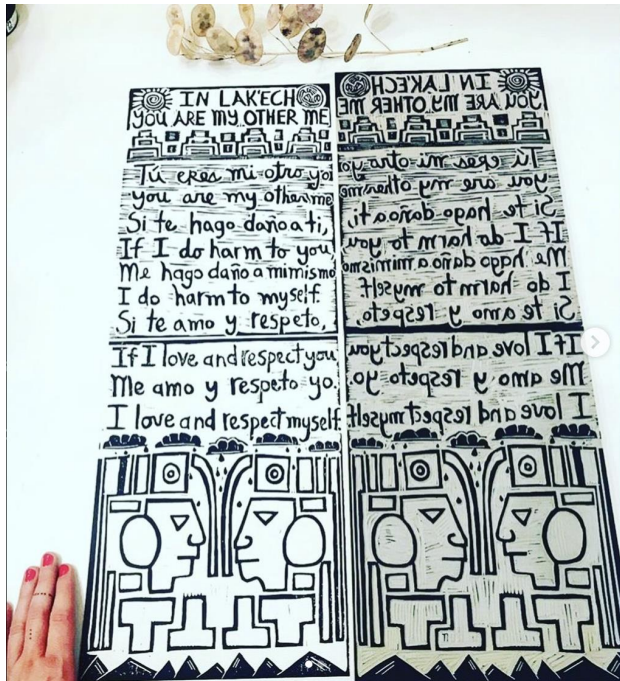 IN LAK'ECH
YOU ARE MY OTHER ME
Tú eres mi otro yo
you are my other me
Si te hago daño a ti,
If I do harm to you
Me hago daño a mi mismo
I do harm to myself.
Si te amo y respeto,
If I love and respect you
Me amo y respeto yo.
I love and respect myself.
IN LAK'ECH
YOU ARE MY OTHER ME
Tú eres mi otro yo
you are my other me
Si te hago daño a ti,
If I do harm to you
Me hago daño a mi mismo
I do harm to myself.
Si te amo y respeto,
If I love and respect you
Me amo y respeto yo.
I love and respect myself.